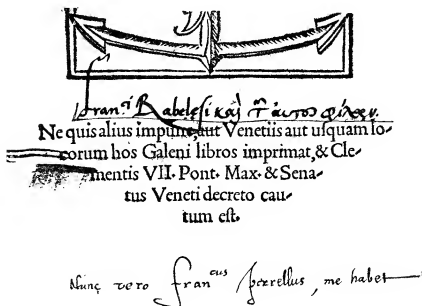 Fran.ci Rabelesi καὶ τῶν αὐτοῦ φίλων.
Ne quis alius impune, aut Venetiis aut usquam lo-
corum hos Galeni libros imprimat, & Cle-
mentis VII. Pont. Max. & Sena-
tus Veneti decreto cau-
tum est.
Nunc vero francus perrellus, me habet